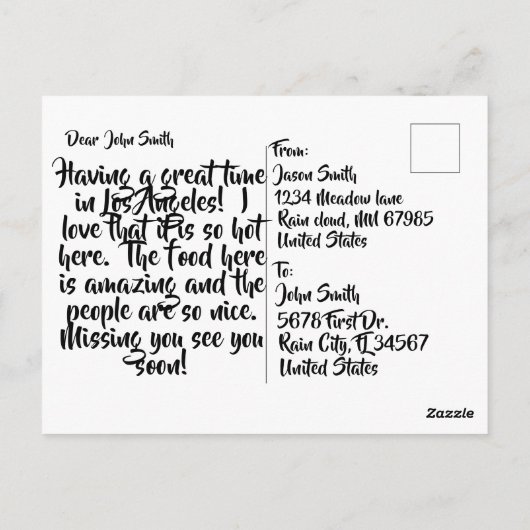 Dear John Smith
Having a great time
in Los Angeles! I
love that it is so hot
here. The food here
is amazing and the
people are so nice.
Missing you see you
soon!
From:
Jason Smith
1234 Meadow lane
Rain cloud, MN 67985
United States
To:
John Smith
5678 First Dr.
Rain City, FL 34567
United States
Zazzle